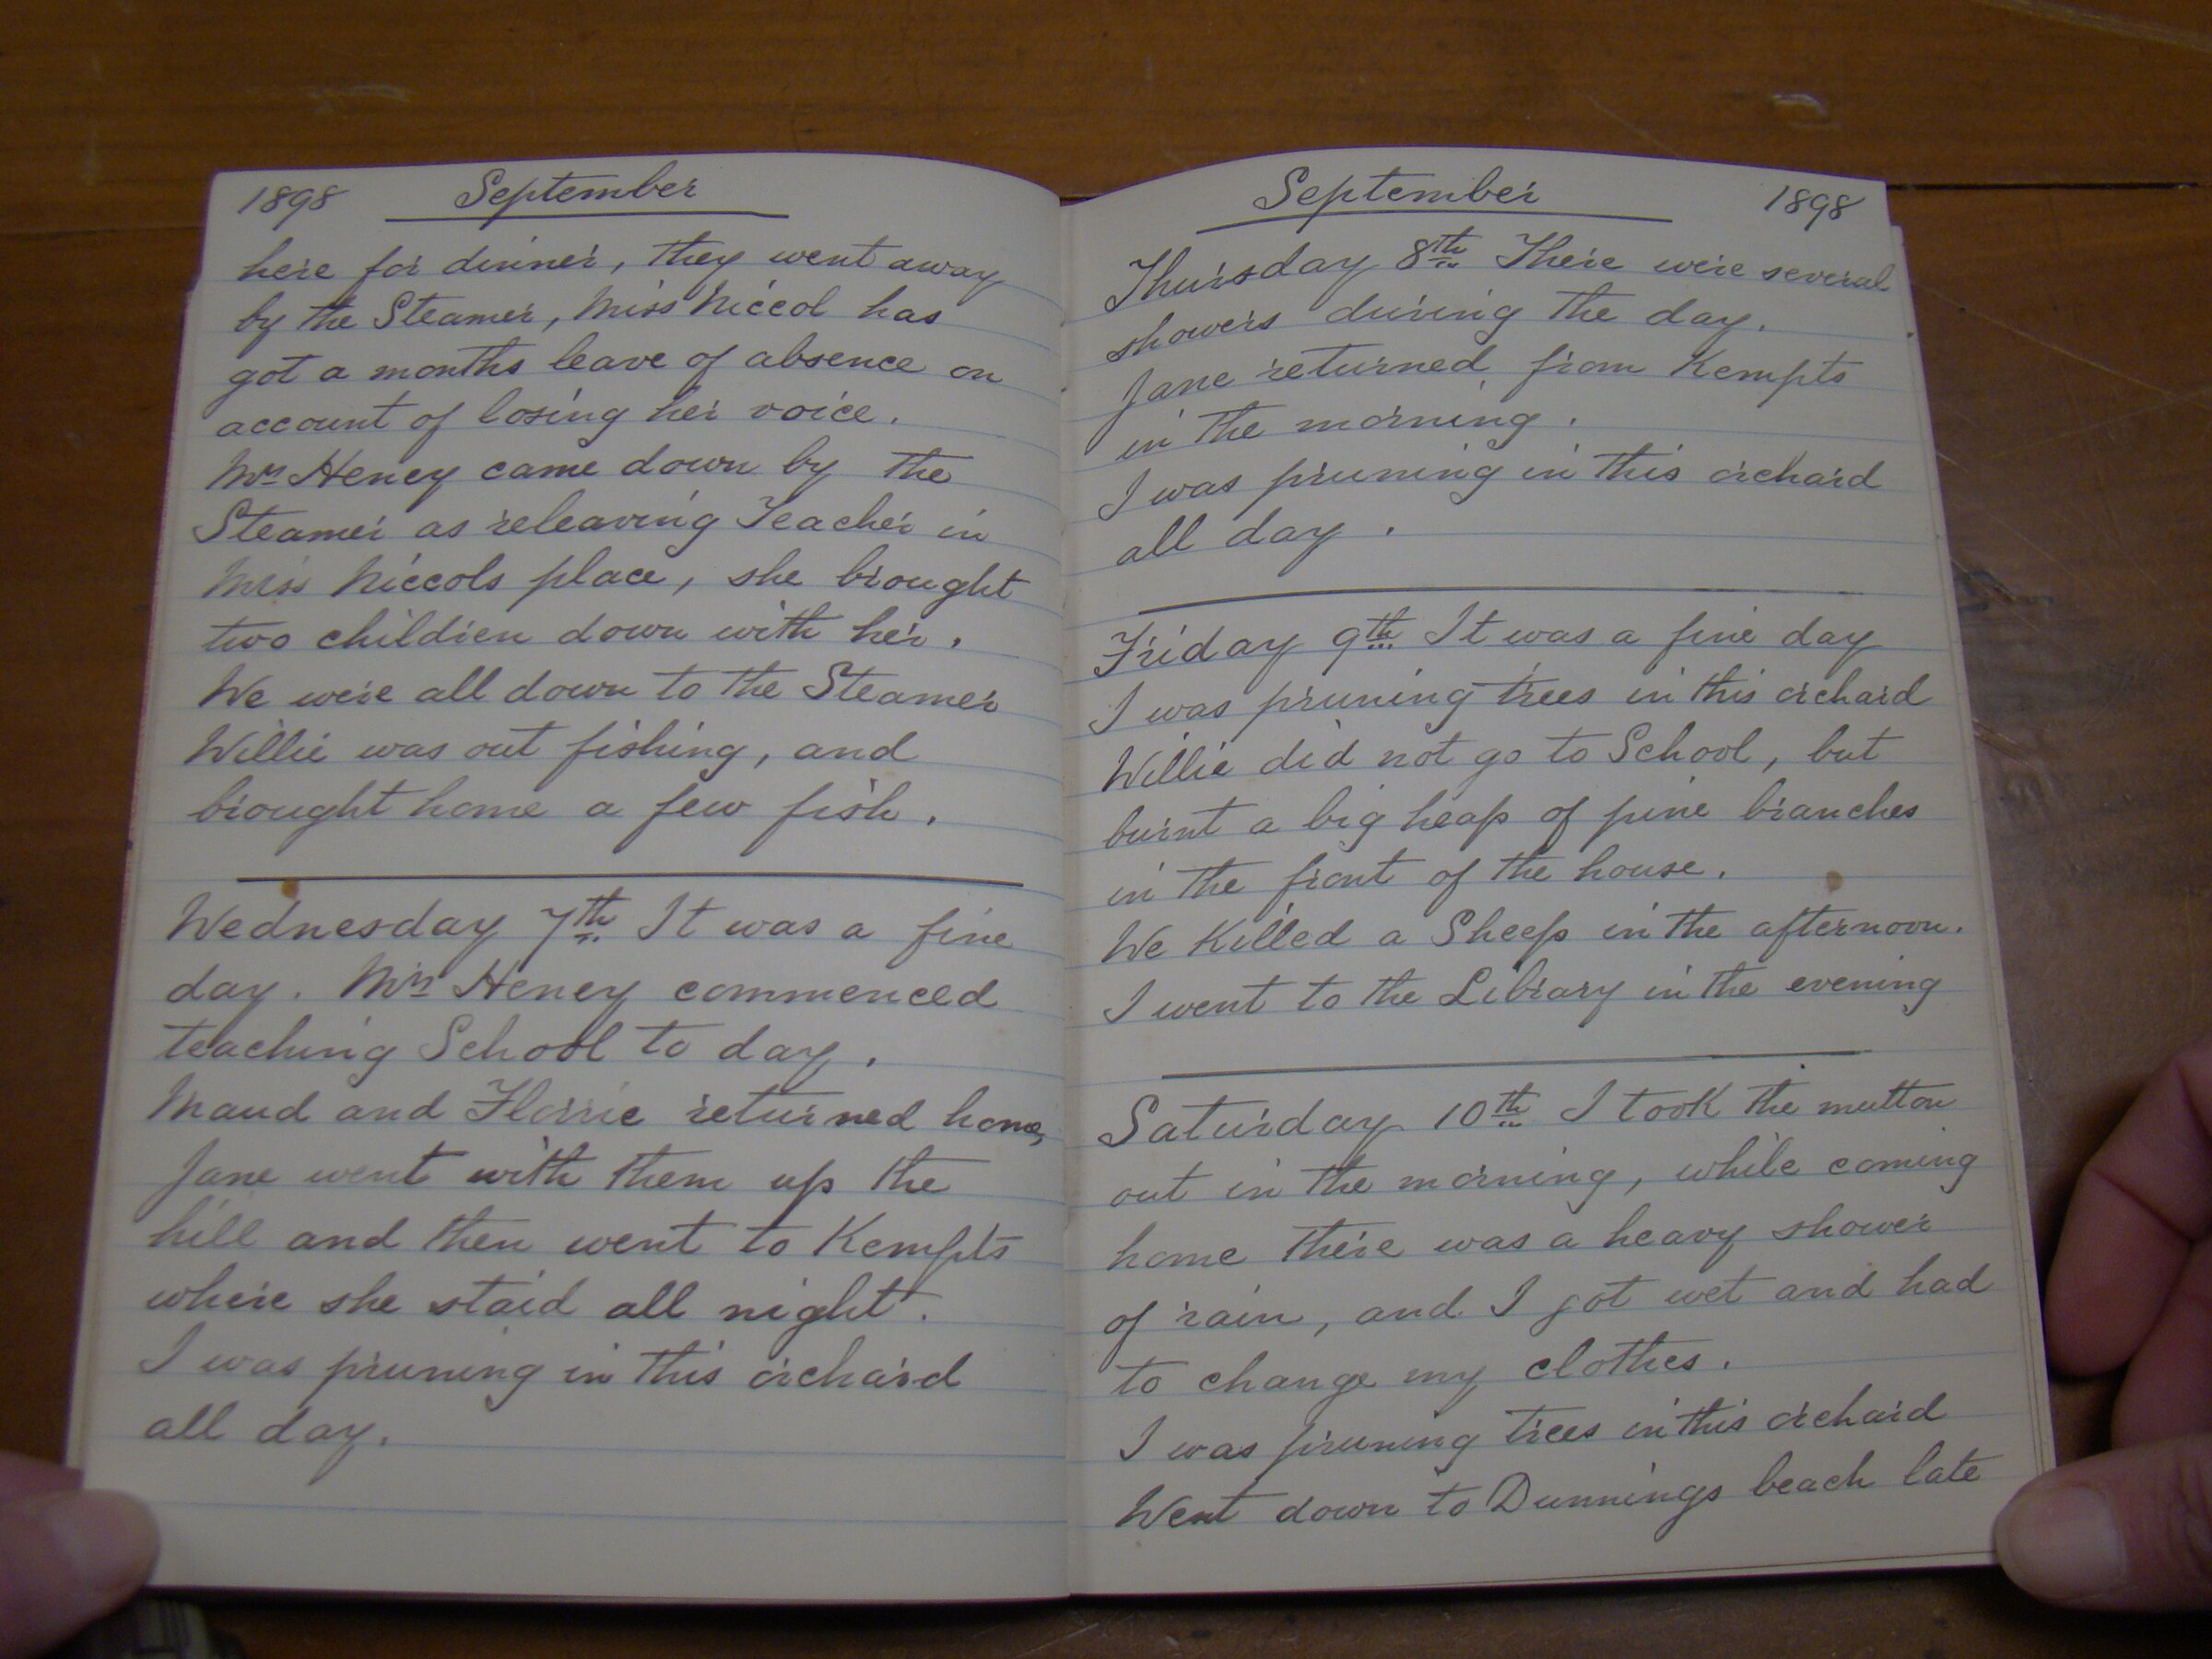 1898 September
here for dinner, they went away
by the Steamer, Miss Niccol has
got a months leave of absence on
account of losing her voice.
Mrs Heney came down by the
Steamer as releaving Teacher in
Miss Niccols place, she brought
two children down with her.
We were all down to the Steamer
Willie was out fishing, and
brought home a few fish.
Wednesday 7th It was a fine
day. Mrs Heney commenced
teaching School to day.
Maud and Florrie returned home,
Jane went with them up the
hill and then went to Kempts
where she staid all night.
I was pruning in this orchard
all day.
September 1898
Thursday 8th There were several
showers during the day.
Jane returned from Kempts
in the morning.
I was pruning in this orchard
all day.
Friday 9th It was a fine day
I was pruning trees in this orchard
Willie did not go to School, but
burnt a big heap of pine branches
in the front of the house.
We Killed a Sheep in the afternoon.
I went to the Library in the evening
Saturday 10th I took the mutton
out in the morning, while coming
home there was a heavy shower
of rain, and I got wet and had
to change my clothes.
I was pruning trees in this orchard
Went down to Dunnings beach late